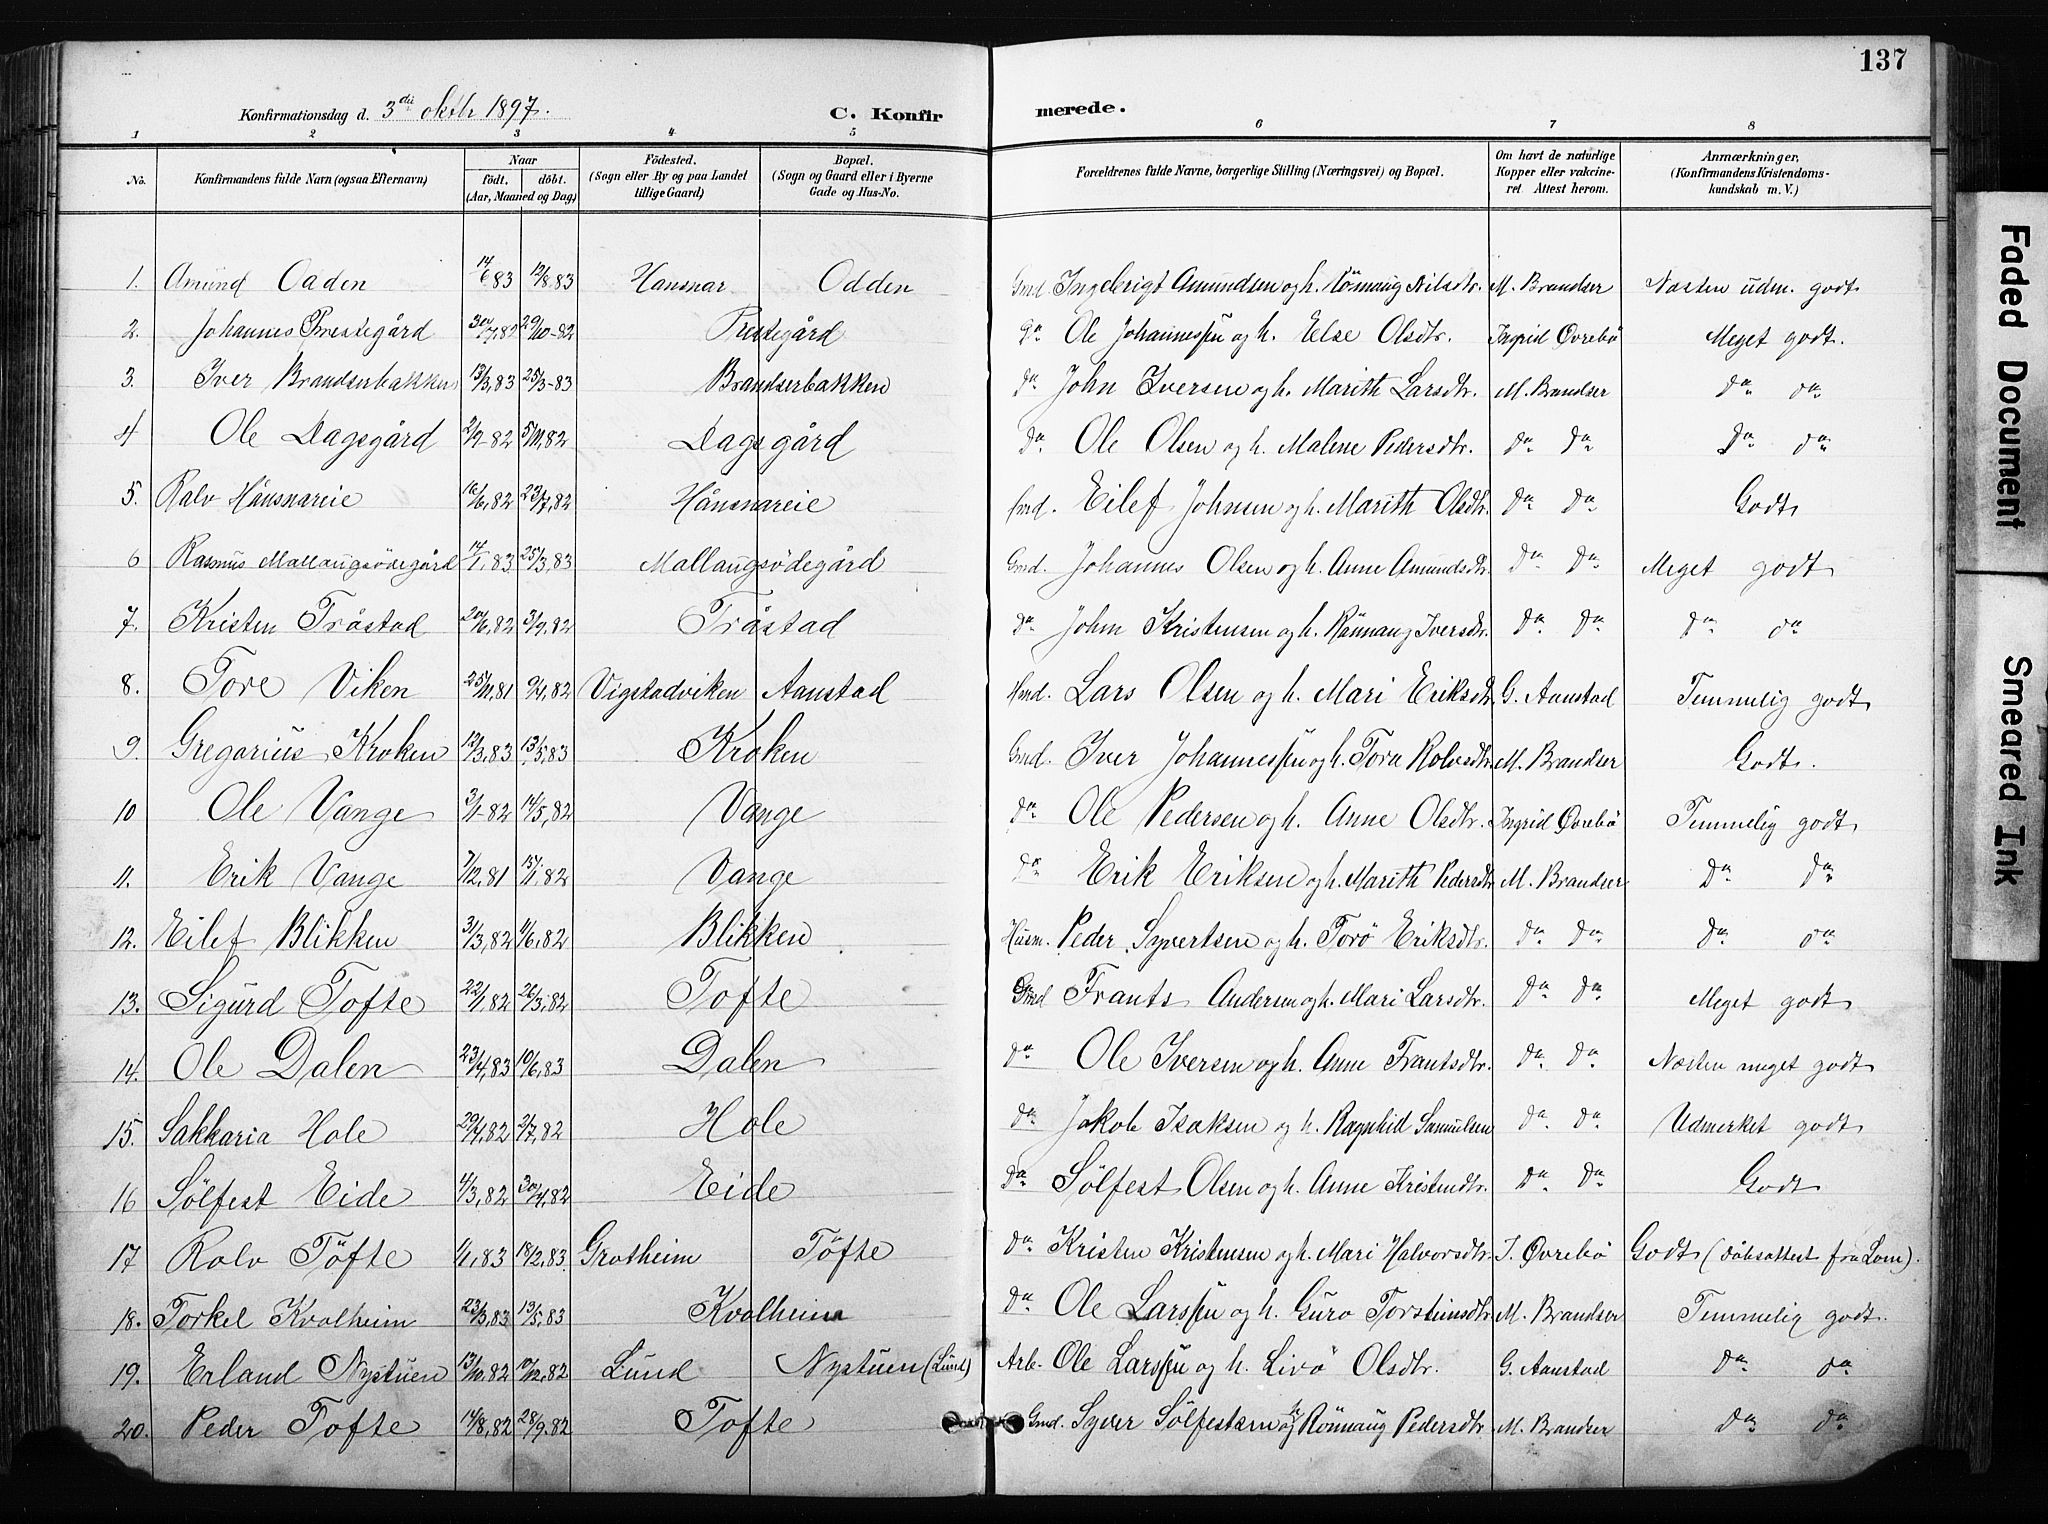 137
Konfirmationsdag d. 3die oktbr 1897.
C. Konfirmerede.
1 2 3 4 5 6 7 8
No.
Konfirmandens fulde Navn (ogsaa Efternavn)
Naar
født. døbt.
(Aar, Maaned og Dag)
Fødested.
(Sogn eller By og paa Landet
tillige Gaard)
Bopæl.
(Sogn og Gaard eller i Byerne
Gade og Hus-No.
Forældrenes fulde Navne, borgerlige Stilling (Næringsvei) og Bopæl.
Om havt de naturlige
Kopper eller vakcine-
ret. Attest herom.
Anmærkninger,
(Konfirmandens Kristendoms-
kundskab m. V.)
1. Amund Odden 14/6 83 12/8.83 Hansnar Odden Gmd. Ingebrigt Amundsen og h. Rönnaug Nilsdtr. M. Brandser Næsten udm. godt
2. Johannes Prestegård 30/7,82 29/10-82 Prestegård do Ole Johannessen og h. Else Olsdtr. Ingrid Øvrebö Meget godt.
3. Iver Brandserbakken 13/3,83 25/3-83 Brandserbakken do John Iversen og h. Marith Larsdtr. M. Brandser do do
4 Ole Dagsgård 2/9-82 5/11,82 Dagsgård do. Ole Olsen og h. Malene Pedersdtr. do do do do
5. Rolv Hånsnareie 16/6,82 23/7,82 Hånsnareie Hmd. Eilef Johnsen og h. Marith Olsdtr. do do Godt
6 Rasmus Mallaugsödegård 14/1,83 25/3,83 Mallaugsödegård Gmd. Johannes Olsen og h. Anne Amundsdtr. do do Meget godt
7. Kristen Tråstad 20/6,82 3/9,82 Tråstad do John Kristensen og h. Rönnaug Iversdtr. do do do do
8. Tore Viken 25/11,81 9/4,82 Vigstadviken Aanstad Hmd. Lars Olsen og h. Mari Eriksdtr G. Aanstad Temmelig godt
9. Gregorius Kroken 12/3,83 13/5,83 Kroken Gmd. Iver Johannessen og h. Tora Rolvsdtr. M. Brandser Godt.
10 Ole Vange 3/1-82 14/5,82 Vange do Ole Pedersen og h. Anne Olsdtr. Ingrid Øvrebö Temmelig godt
11. Erik Vange 7/12,81 15/1,82 Vange do Erik Eriksen og h. Marith Pedersdtr M. Brandser do do
12. Eilef Blikken 31/3,82 11/6,82 Blikken Husm. Peder Syvertsen og h. Torö Eriksdtr. do do do do
13. Sigurd Tofte 22/1,82 26/3,82 Tofte Gmd Frants Andersen og h. Mari Larsdtr. do do Meget godt
14. Ole Dalen 23/4,83 10/6,83 Dalen do Ole Iversen og h. Anne Frantsdtr. do do Næsten meget godt
15. Sakkaria Hole 29/4,82 2/7,82 Hole do Jakob Isaksen og h. Ragnhid Samuelsen do do Udmerket godt
16 Sölfest Eide 4/3,82 30/4,82 Eide do Sölfest Olsen og h. Anne Kristendtr. do do Godt
17 Rolv Töfte 1/1,83 18/2,83. Grotheim Töfte do Kristen Kristensen og h. Mari Halvorsdtr. I. Øvrebö Godt (döbsattest fra Lom).
18. Torkel Kvolheim 23/3,83 13/5,83 Kvolheim do Ole Larssen og h. Guro Torsteinsdtr. M. Brandser Temmelig godt.
19. Erland Nystuen 13/10,82 10/12,82 Lund Nystuen (Lund) Arb. Ole Larssen og h. Livö Olsdtr. G. Aanstad do do
20. Peder Tofte 14/8,82 28/9.82 Tofte Gmd. Syver Sölfestsen og h Rönnaug Pedersdtr M. Brandser do do
Faded Document
Smeared Ink